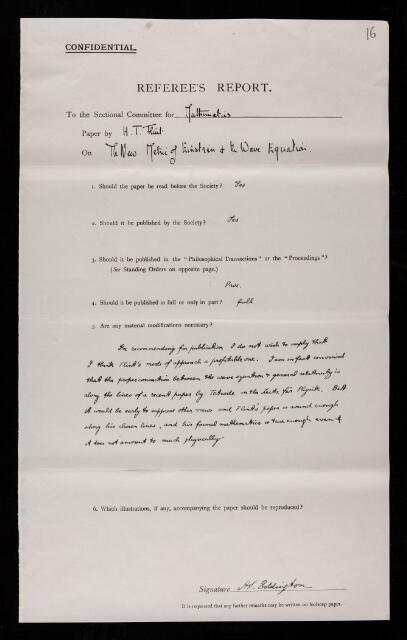 16
CONFIDENTIAL.
REFEREE'S REPORT.
To the Sectional Committee for Mathematics
Paper by H. T. Flint.
On The New Metric of Einstein & the Wave Equation.
1. Should the paper be read before the Society? Yes
2. Should it be published by the Society? Yes
3. Should it be published in the "Philosophical Transactions" or the "Proceedings"?
(See Standing Orders on opposite page.)
Proc.
4. Should it be published in full or only in part? full
5. Are any material modifications necessary?
In recommending for publication I do not wish to imply that
I think Flint's mode of approach a profitable one. I am in fact convinced
that the proper connection between the wave equation & general relativity is
along the lines of a recent paper by Tetrode in the Zeits. für Physik. But
it would be early to suppress other views and Flint's paper is sound enough
along his chosen lines, and his formal mathematics is true enough even if
it does not amount to much physically
6. Which illustrations, if any, accompanying the paper should be reproduced?
Signature A.S. Eddington
It is requested that any further remarks may be written on foolscap paper.